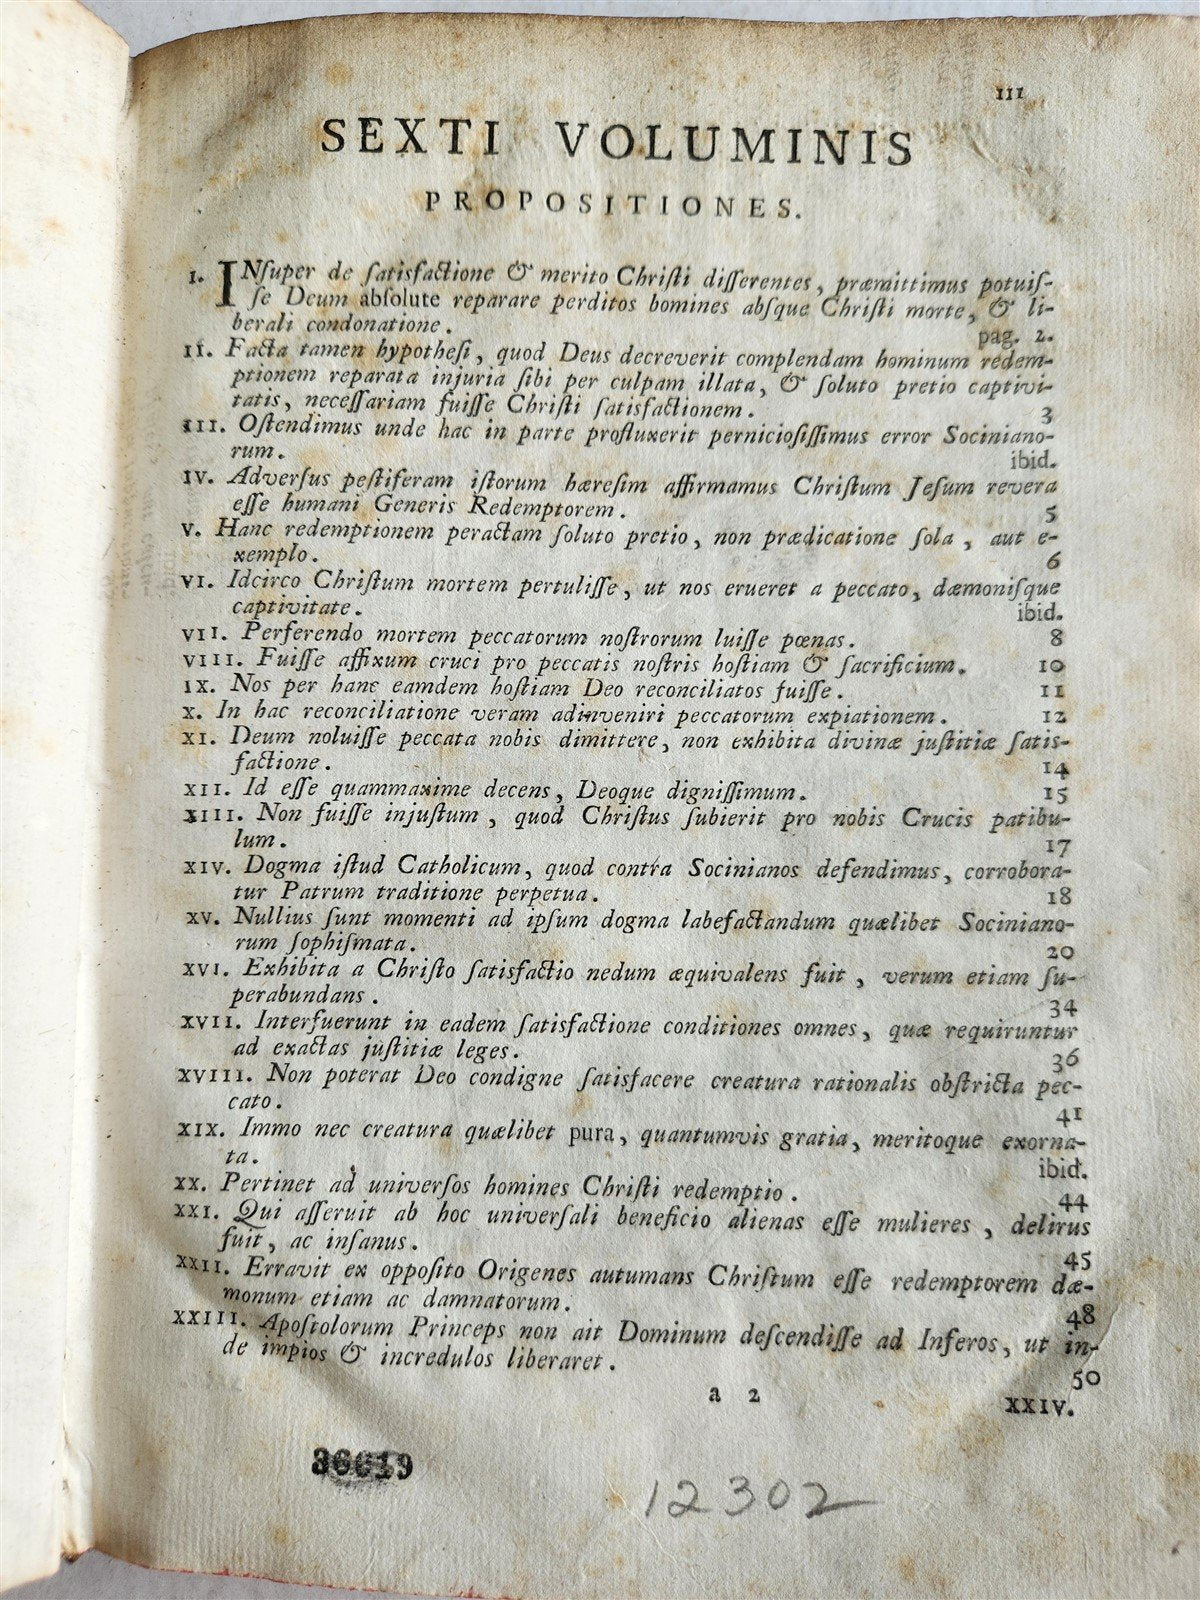 III
SEXTI VOLUMINIS
PROPOSITIONES.
I. INſuper de ſatisfactione & merito Chriſti diſſerentes, præmittimus potuiſ-
ſe Deum abſolute reparare perditos homines abſque Chriſti morte, & li-
berali condonatione. pag. 2.
II. Facta tamen hypotheſi, quod Deus decreverit complendam hominum redem-
ptionem reparata injuria ſibi per culpam illata, & ſoluto pretio captivi-
tatis, neceſſariam fuiſſe Chriſti ſatisfactionem. 3
III. Oſtendimus unde hac in parte profluxerit pernicioſiſſimus error Sociniano-
rum. ibid.
IV. Adverſus peſtiferam iſtorum hæreſim affirmamus Chriſtum Jeſum revera
eſſe humani Generis Redemptorem. 5
V. Hanc redemptionem peractam ſoluto pretio, non prædicatione ſola, aut e-
xemplo. 6
VI. Idcirco Chriſtum mortem pertuliſſe, ut nos erueret a peccato, dæmoniſque
captivitate. ibid.
VII. Perferendo mortem peccatorum noſtrorum luiſſe pœnas. 8
VIII. Fuiſſe affixum cruci pro peccatis noſtris hoſtiam & ſacrificium. 10
IX. Nos per hanc eamdem hoſtiam Deo reconciliatos fuiſſe. 11
X. In hac reconciliatione veram adinveniri peccatorum expiationem. 12
XI. Deum noluiſſe peccata nobis dimittere, non exhibita divinæ juſtitiæ ſatis-
factione. 14
XII. Id eſſe quammaxime decens, Deoque digniſſimum. 15
XIII. Non fuiſſe injuſtum, quod Chriſtus ſubierit pro nobis Crucis patibu-
lum. 17
XIV. Dogma iſtud Catholicum, quod contra Socinianos defendimus, corrobora-
tur Patrum traditione perpetua. 18
XV. Nullius ſunt momenti ad ipſum dogma labefactandum quælibet Sociniano-
rum ſophiſmata. 20
XVI. Exhibita a Chriſto ſatisfactio nedum æquivalens fuit, verum etiam ſu-
perabundans. 34
XVII. Interfuerunt in eadem ſatisfactione conditiones omnes, quæ requiruntur
ad exactas juſtitiæ leges. 36
XVIII. Non poterat Deo condigne ſatisfacere creatura rationalis obſtricta pec-
cato. 41
XIX. Immo nec creatura quælibet pura, quantumvis gratia, meritoque exorna-
ta. ibid.
XX. Pertinet ad univerſos homines Chriſti redemptio. 44
XXI. Qui aſſeruit ab hoc univerſali beneficio alienas eſſe mulieres, delirus
fuit, ac inſanus. 45
XXII. Erravit ex oppoſito Origenes autumans Chriſtum eſſe redemptorem dæ-
monum etiam ac damnatorum. 48
XXIII. Apoſtolorum Princeps non ait Dominum deſcendiſſe ad Inferos, ut in-
de impios & incredulos liberaret. 50
a 2 XXIV.
36619
12302